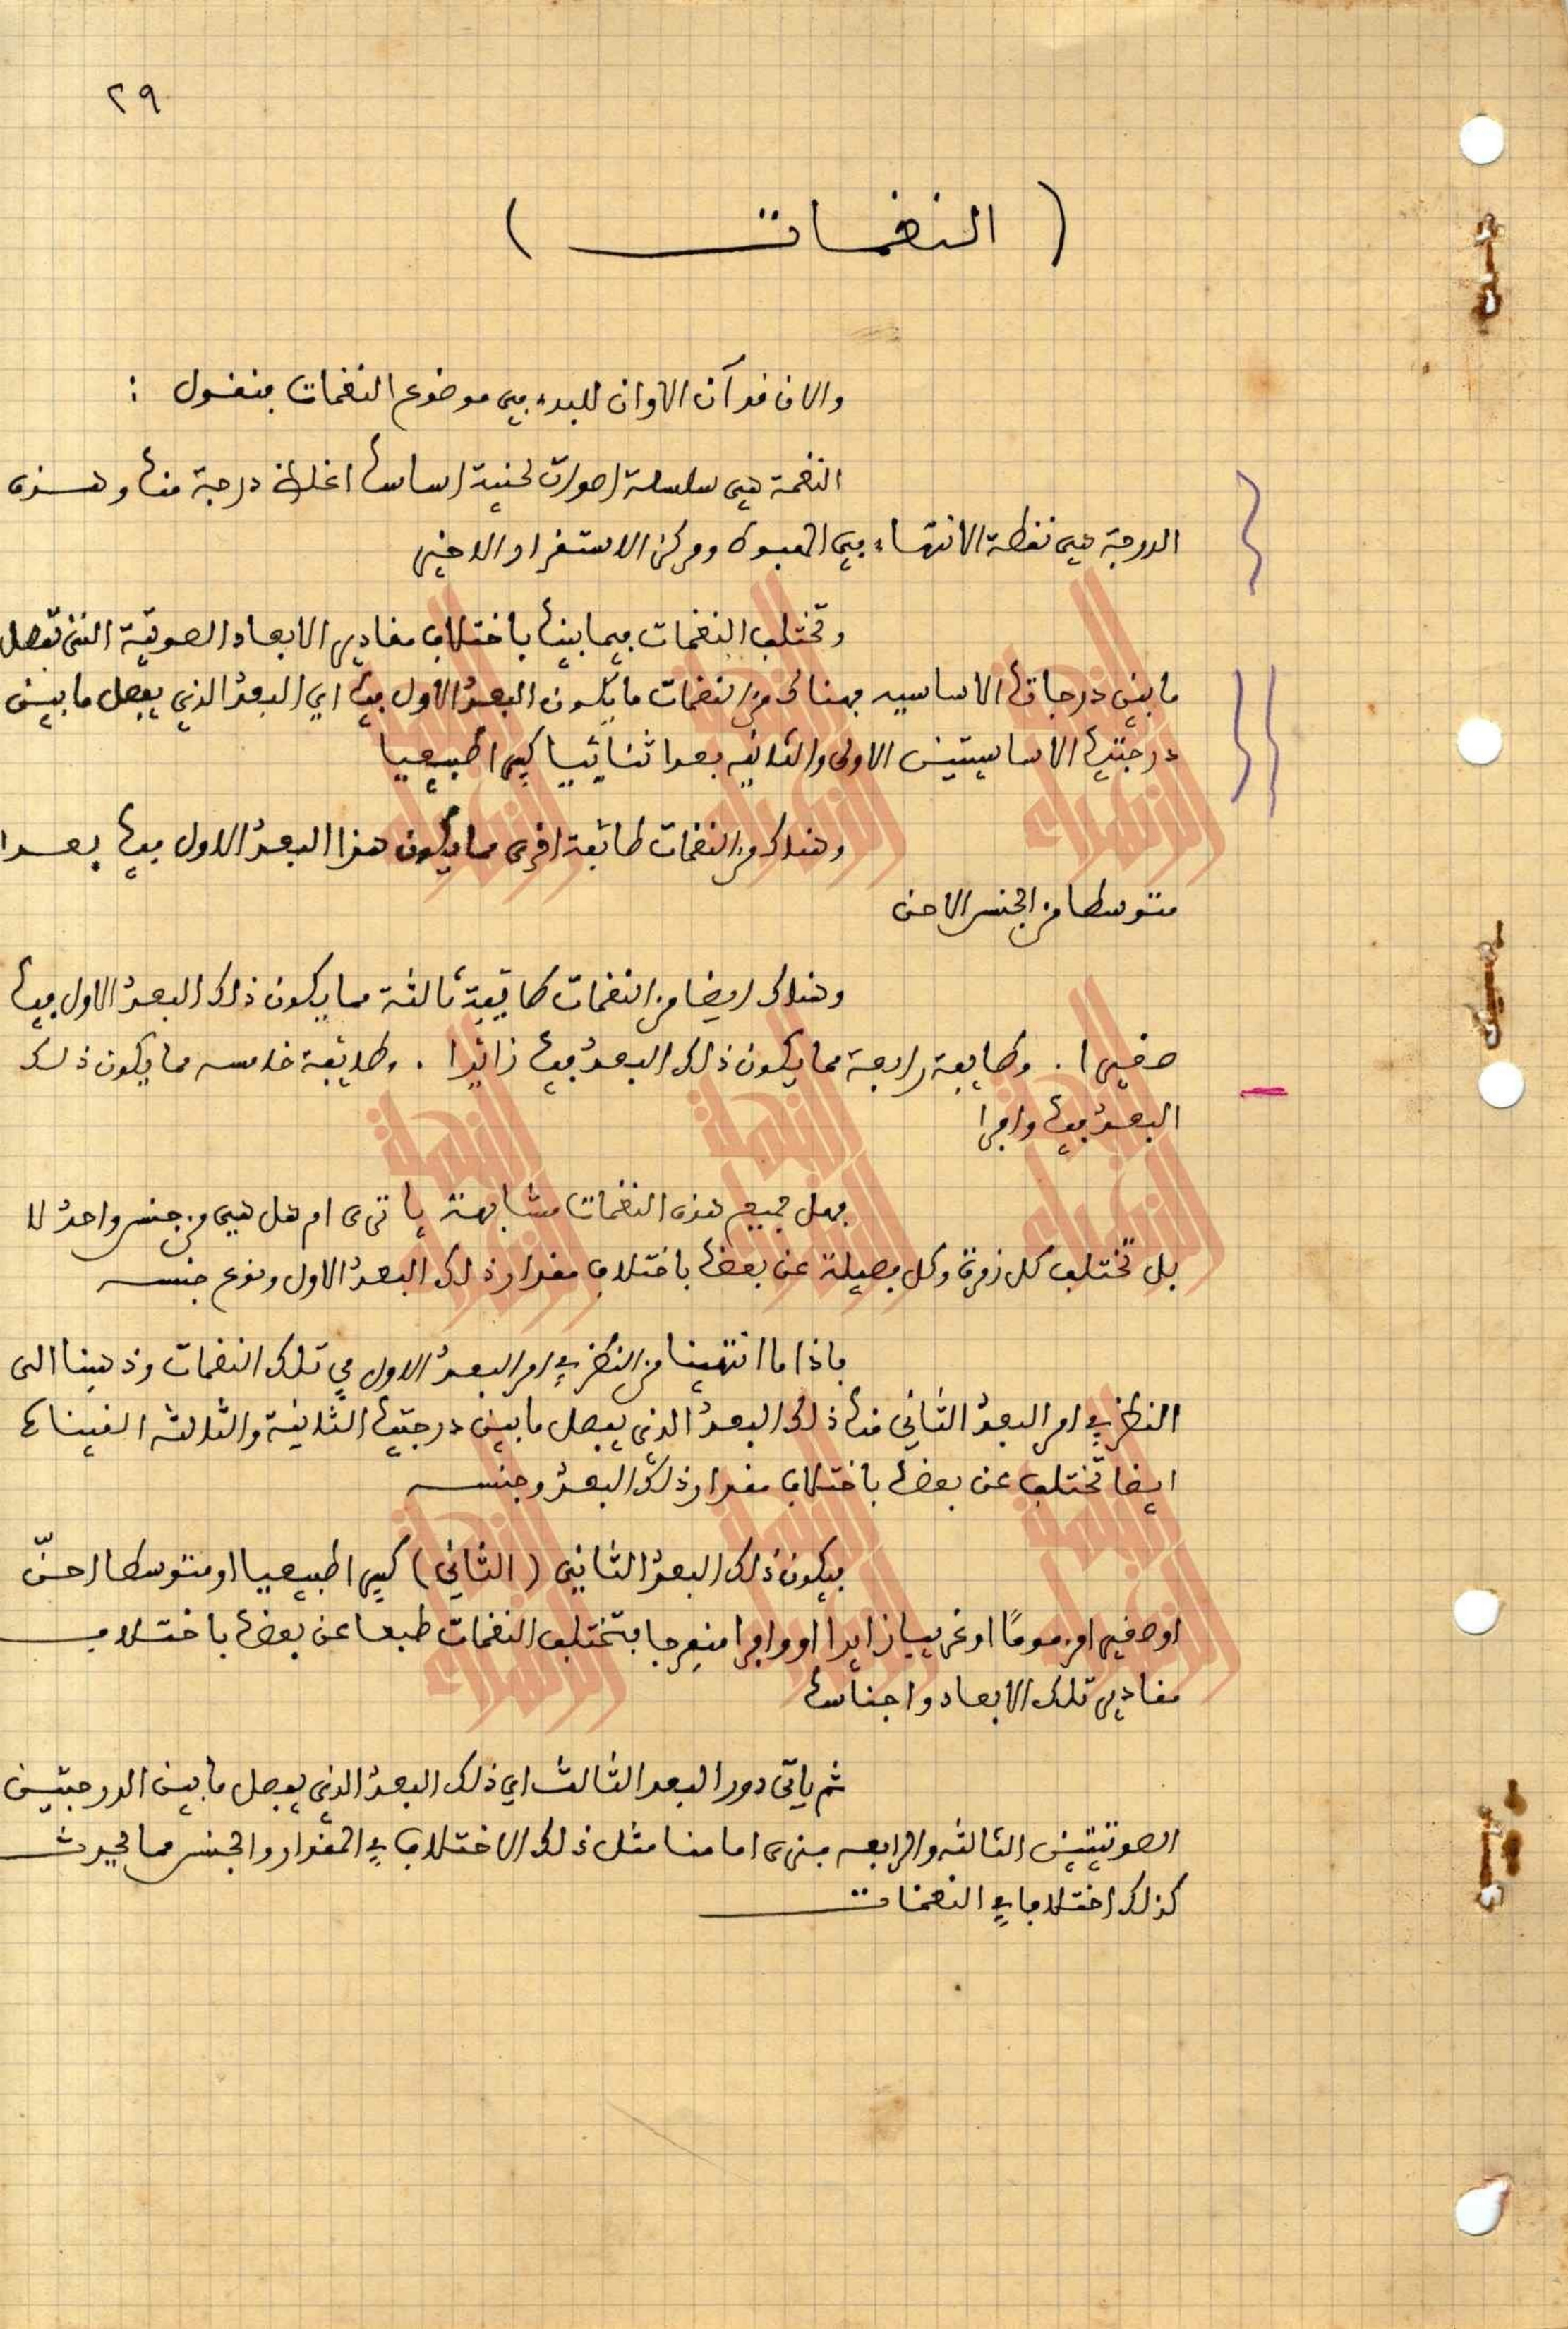 ٢٩
( النغمات )
والان فد آن الاوان للبدء في موضوع النغمات فنقول :
النغمة هي سلسلة اصوات لحنية اساسها اغلظ درجة منها وهذه
الدرجة هي نقطة الانتهاء في الهبوط ومركز الاستقرار الاخير
وتختلف النغمات فيما بينها باختلاف مقادير الابعاد الصوتية التي تفصل
ما بين درجاتها الاساسيه فهناك من النغمات ما يكون البعد الاول فيها اي البعد الذي يفصل ما بين
درجتيها الاساسيتين الاولى والثانيه بعدا ثنائيا كبيرا طبيعيا
وهناك من النغمات طائفة اخرى مما يكون هذا البعد الاول فيها بعدا
متوسطا من الجنس الاحن
وهناك ايضا من النغمات طايفة ثالثة مما يكون ذلك البعد الاول فيها
صغيرا . وطايفة رابعة مما يكون ذلك البعد فيها زائدا . وطايفة خامسه مما يكون ذلك
البعد فيها وافرا
فهل جميع هذه النغمات متشابهة يا ترى ام هل هي من جنس واحد لا
بل تختلف كل زمرة وكل فصيلة عن بعضها باختلاف مقدار ذلك البعد الاول ونوع جنسه
فاذا ما انتهينا من النظر في امر البعد الاول في تلك النغمات وذهبنا الى
النظر في امر البعد الثاني منها ذلك البعد الذي يفصل ما بين درجتيها الثانية والثالثة الفيناها
ايضا تختلف عن بعضها باختلاف مقدار ذلك البعد وجنسه
فيكون ذلك البعد الثاني (الثاني) كبيرا طبيعيا او متوسطا احنّ
او صغيرا مزموما او غريبا زايدا او وافرا منفرجا فتختلف النغمات طبعا عن بعضها باختلاف
مقادير تلك الابعاد واجناسها
ثم ياتي دور البعد الثالث اي ذلك البعد الذي يفصل ما بين الدرجتين
الصوتيتين الثالثه والرابعه فنرى امامنا مثل ذلك الاختلاف في المقدار والجنس مما يحدث
كذلك اختلافا في النغمات